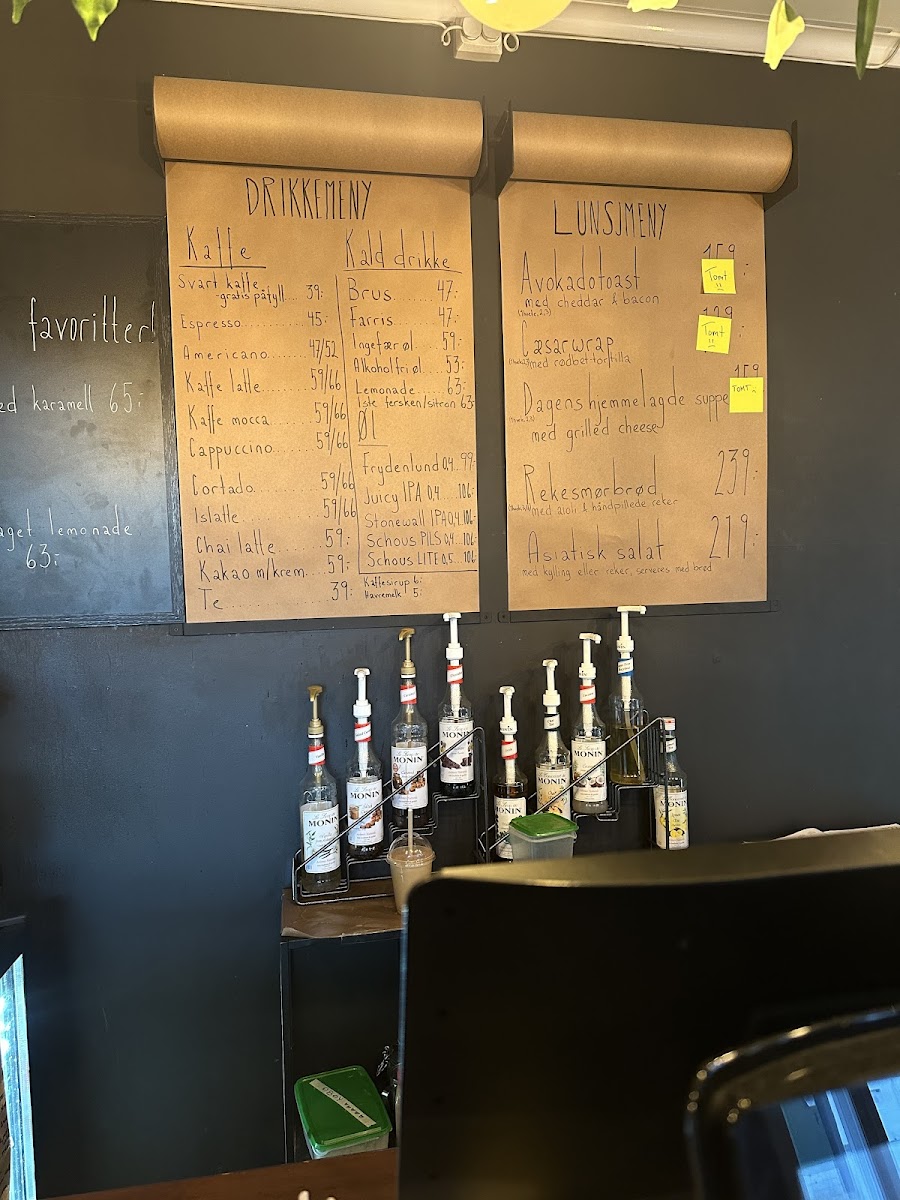 favoritter!
ed karamell 65:-
aget lemonade
63:-
DRIKKEMENY
Kaffe
Svart kaffe
-gratis påfyll.... 39:-
Espresso......... 45:-
Americano........ 47/52
Kaffe latte....... 59/66
Kaffe mocca....... 59/66
Cappuccino....... 59/66
Cortado.......... 59/66
Islatte........... 59/66
Chai latte....... 59:-
Kakao m/krem... 59:-
Te.............. 39:-
Kald drikke
Brus....... 47:-
Farris....... 47:-
Ingefær øl.... 59:-
Alkoholfri øl.... 53:-
Lemonade...... 63:-
Iste fersken/sitron 63:-
Øl
Frydenlund 0,4..99:-
Juicy IPA 0,4...106:-
Stonewall IPA 0,4..106:-
Schous PILS 0,4..106:-
Schous LITE 0,5...106:-
Kaffesirup 6:-
Havremelk 5:-
LUNSJMENY
Avokadotoast 159:-
med cheddar & bacon
Tomt
Cæsarwrap
med rødbet-tortilla
Tomt
Dagens hjemmelagde suppe 159
med grilled cheese
TOMT
Rekesmørbrød 239:-
med aioli & håndpillede reker
Asiatisk salat 219:-
med kylling eller reker, serveres med brød
MONIN
MONIN
MONIN
MONIN
MONIN
MONIN
MONIN
MONIN